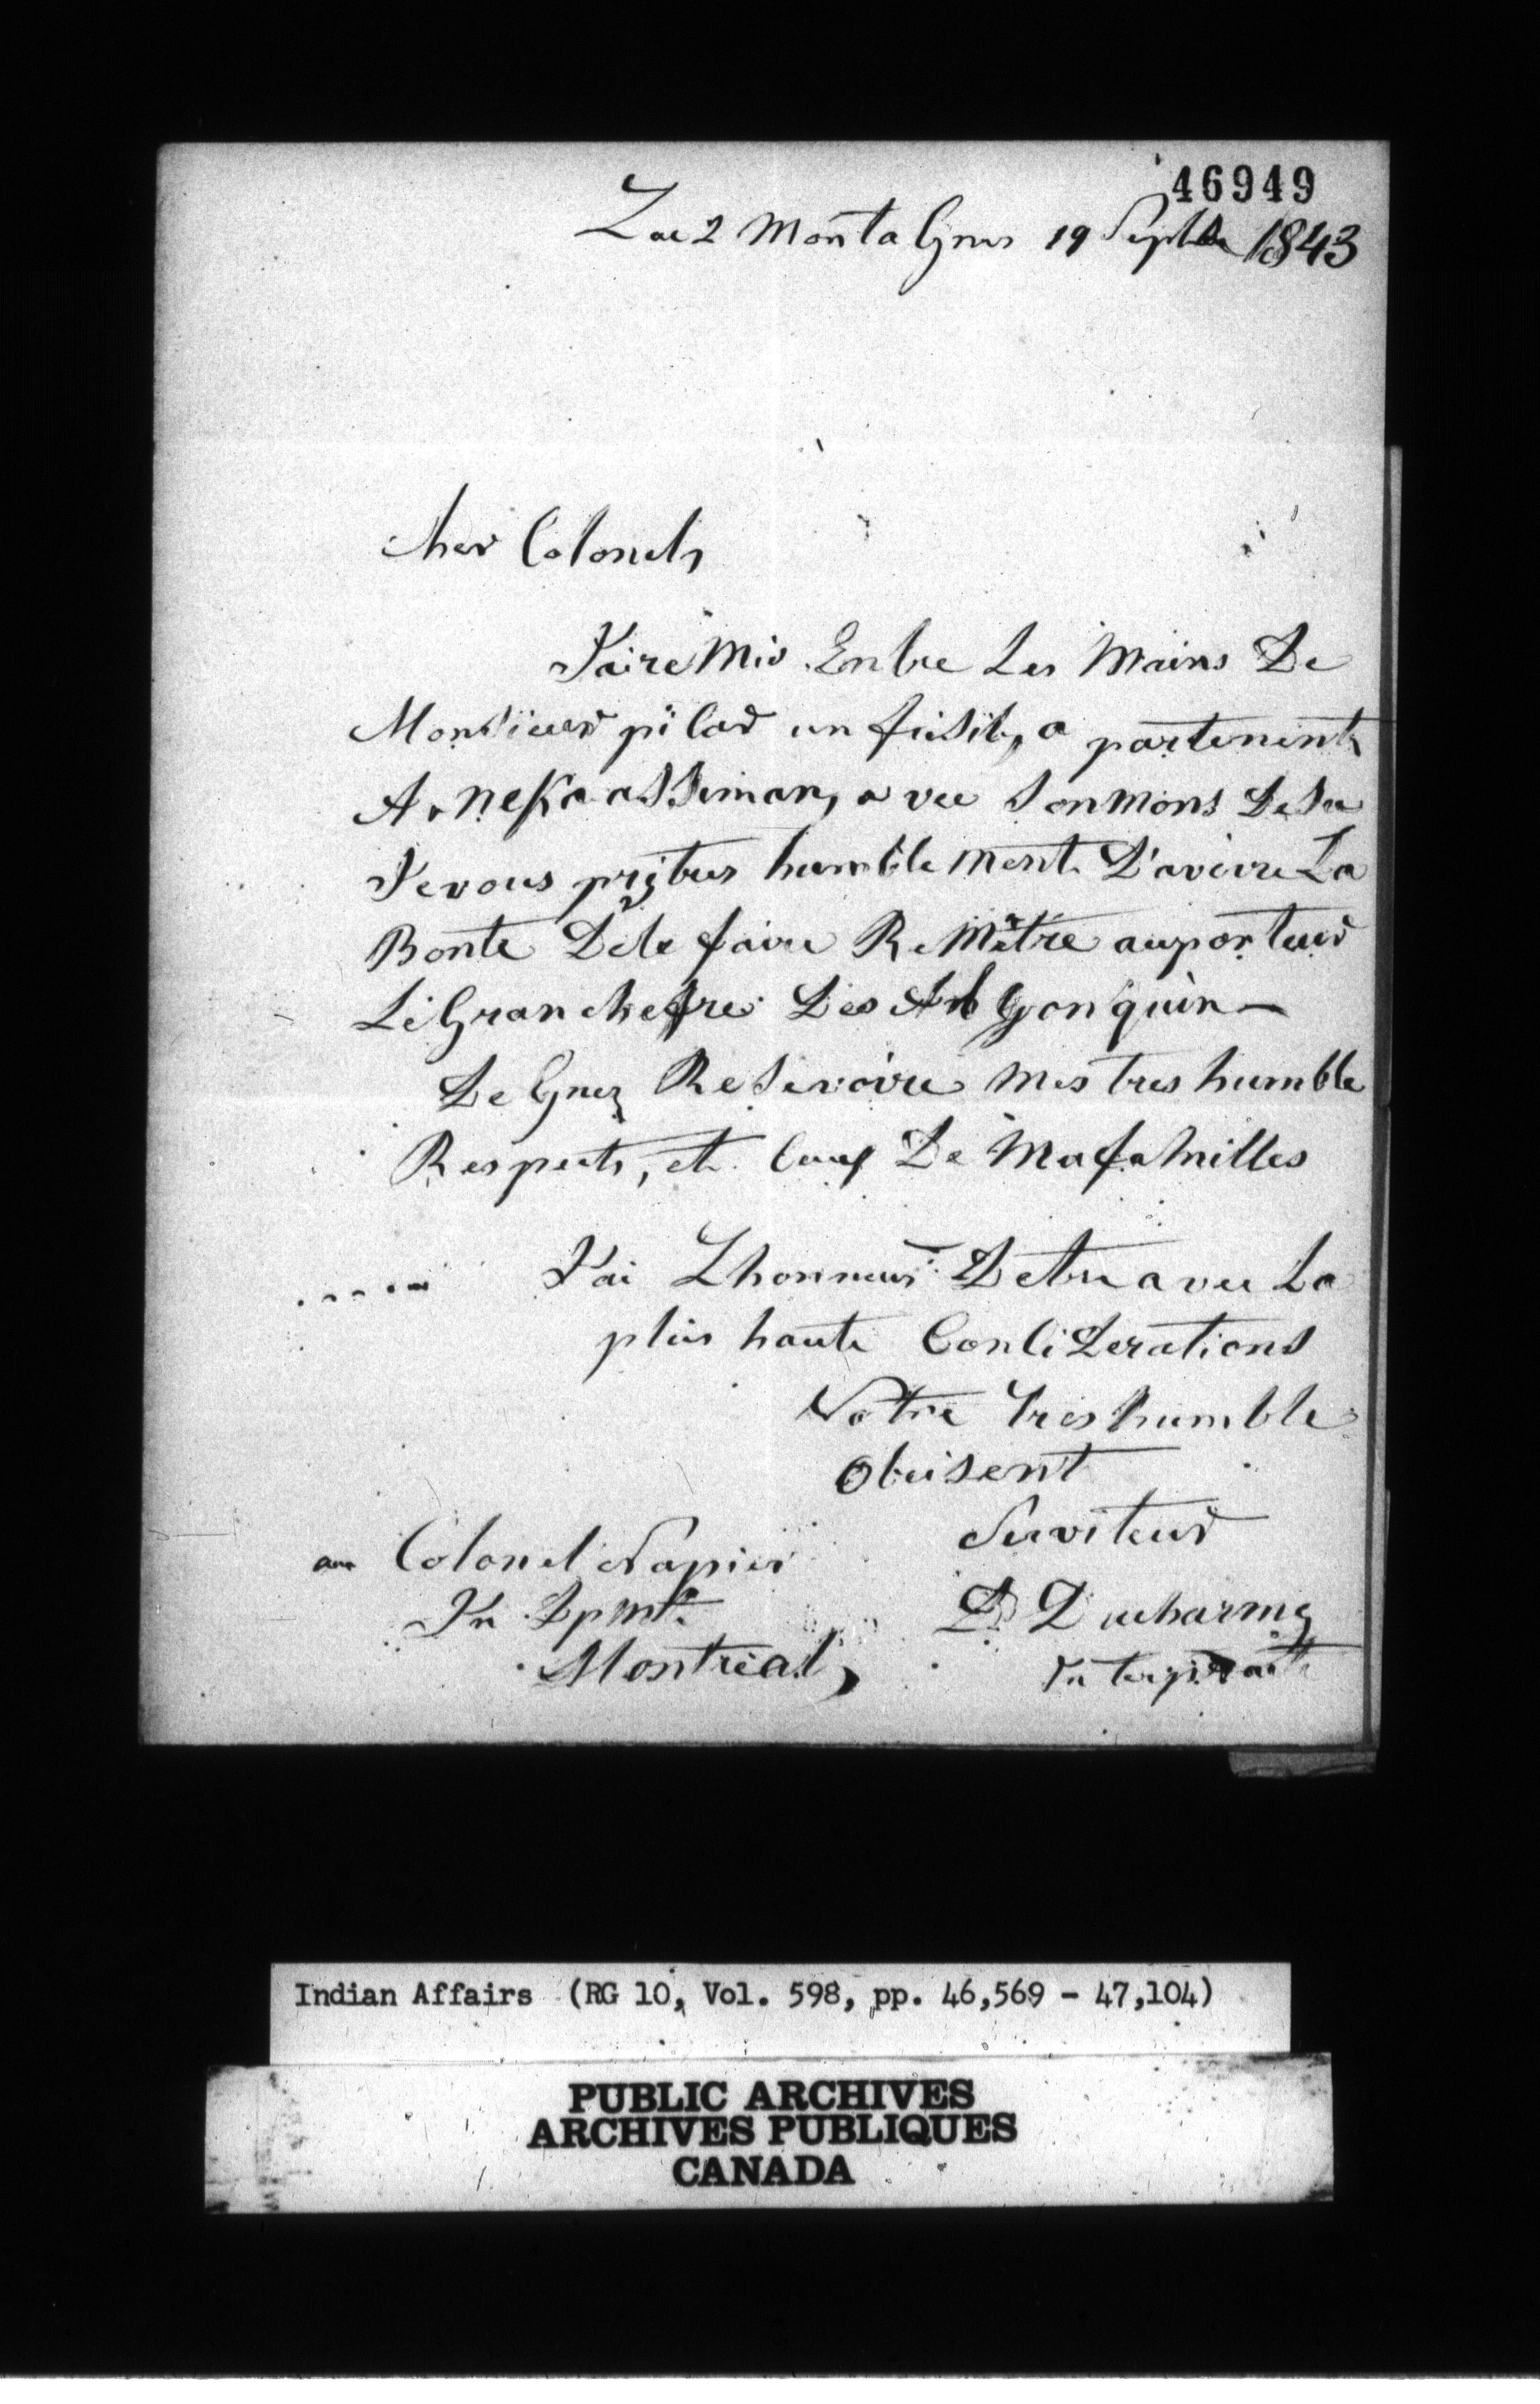 46949
Lac 2 Monta Gnes 19 Septbr 1843
cher Colonels
J'ai re Mis Entre Les Mains De
Monsieur pilad un fusil, a partenent
A, neKa assiman, a vec Son mons De Su
Je vous pri tres humble ment D'avoire La
Bonte De le faire ReMêtre au porteur
Le Gran chefre Des Al Gonquin —
De Gnez Resevoire mes tres humble
Respects, et Ceux De Ma familles
J'ai Lhonneur D'etre a vec La
plus haute Conciderations
Votre Tres humble
Obeisent
Serviteur
au Colonel Napier
In Dpmt.
Montreal,
D Ducharme
Interprete
Indian Affairs (RG 10, Vol. 598, pp. 46,569 - 47,104)
PUBLIC ARCHIVES
ARCHIVES PUBLIQUES
CANADA